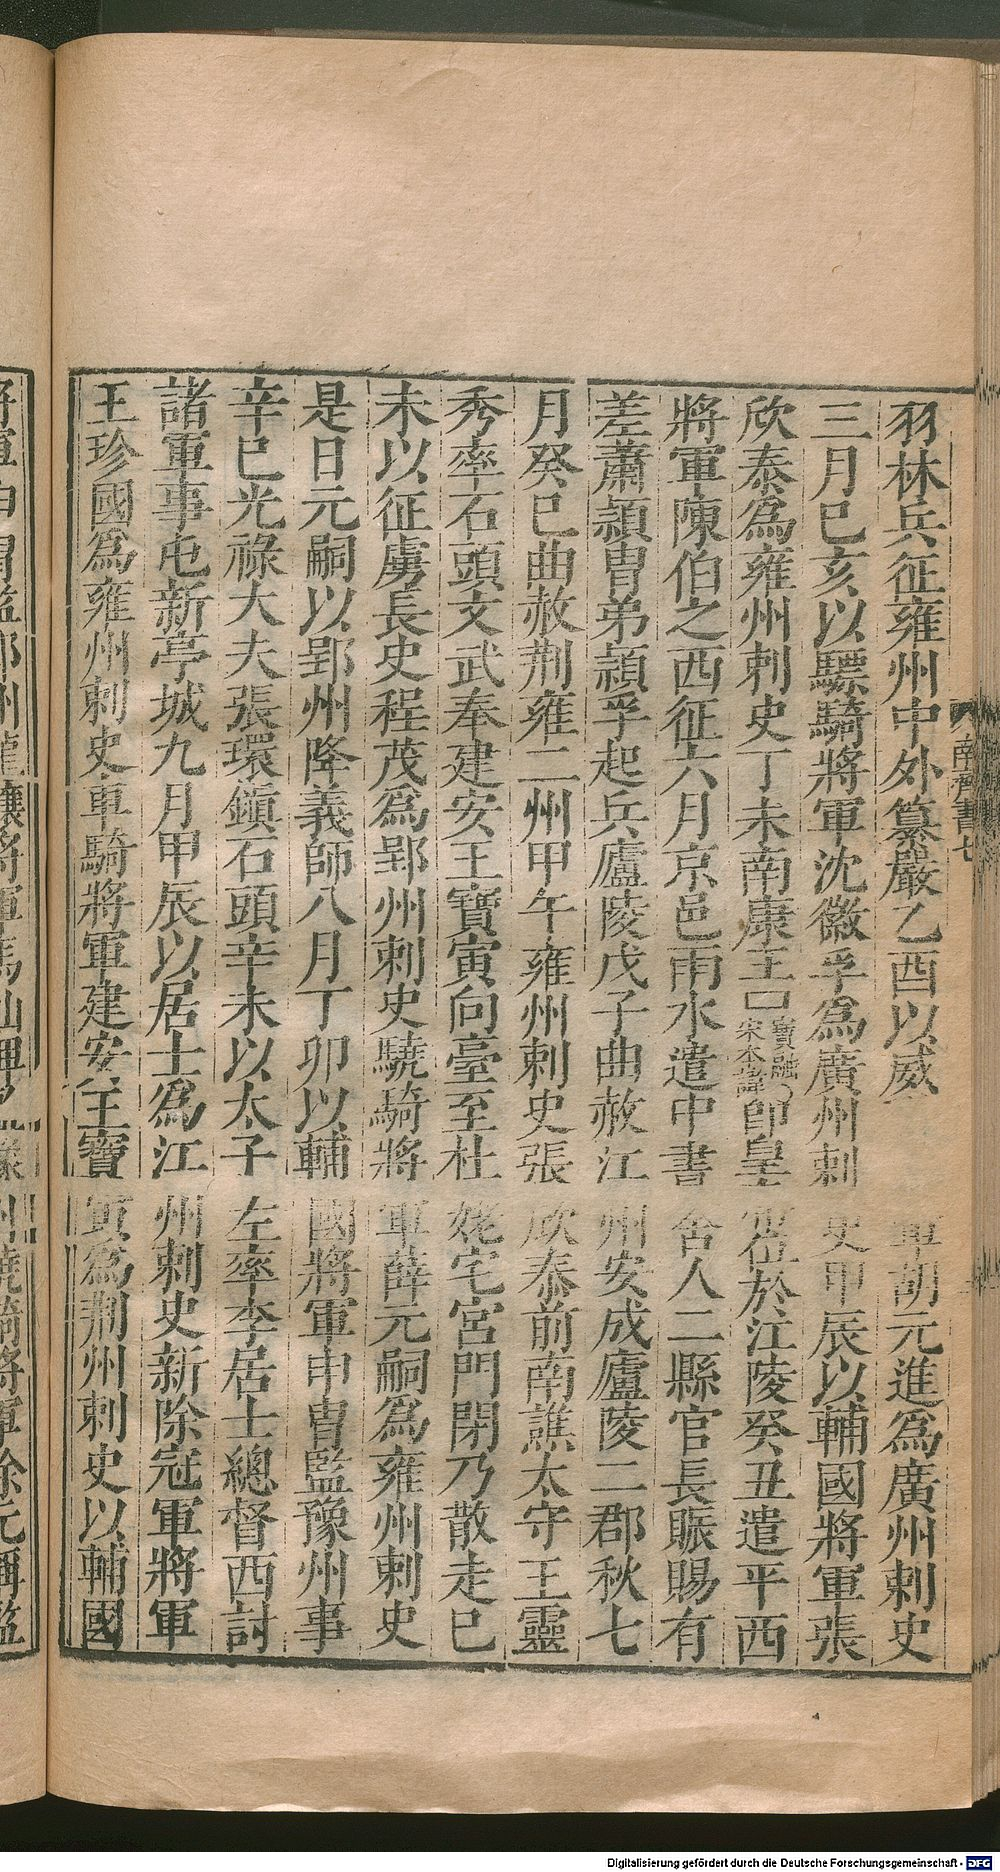 羽林兵征雍州中外纂嚴乙酉以威軍胡元進爲廣州刺史
三月巳亥以驃騎將軍沈徽孚爲廣州刺史甲辰以輔國將軍張
欣泰爲雍州刺史丁未南康王寶融宋本諱即皇帝位於江陵癸丑遣平西
將軍陳伯之西征六月京邑雨水遣中書舍人二縣官長賑賜有
差蕭穎冑弟穎孚起兵廬陵戊子曲赦江州安成廬陵二郡秋七
月癸巳曲赦荆雍二州甲午雍州刺史張欣泰前南譙太守王靈
秀率石頭文武奉建安王寶寅向臺至杜姥宅宮門閉乃散走巳
未以征虜長史程茂爲郢州刺史驍騎將軍薛元嗣爲雍州刺史
是日元嗣以郢州降義師八月丁卯以輔國將軍申冑監豫州事
辛巳光祿大夫張瓌鎭石頭辛未以太子左率李居士總督西討
諸軍事屯新亭城九月甲辰以居士爲江州刺史新除冠軍將軍
王珍國爲雍州刺史車騎將軍建安王寶寅爲荆州刺史以輔國
南齊書七
Digitalisierung gefördert durch die Deutsche Forschungsgemeinschaft - DFG